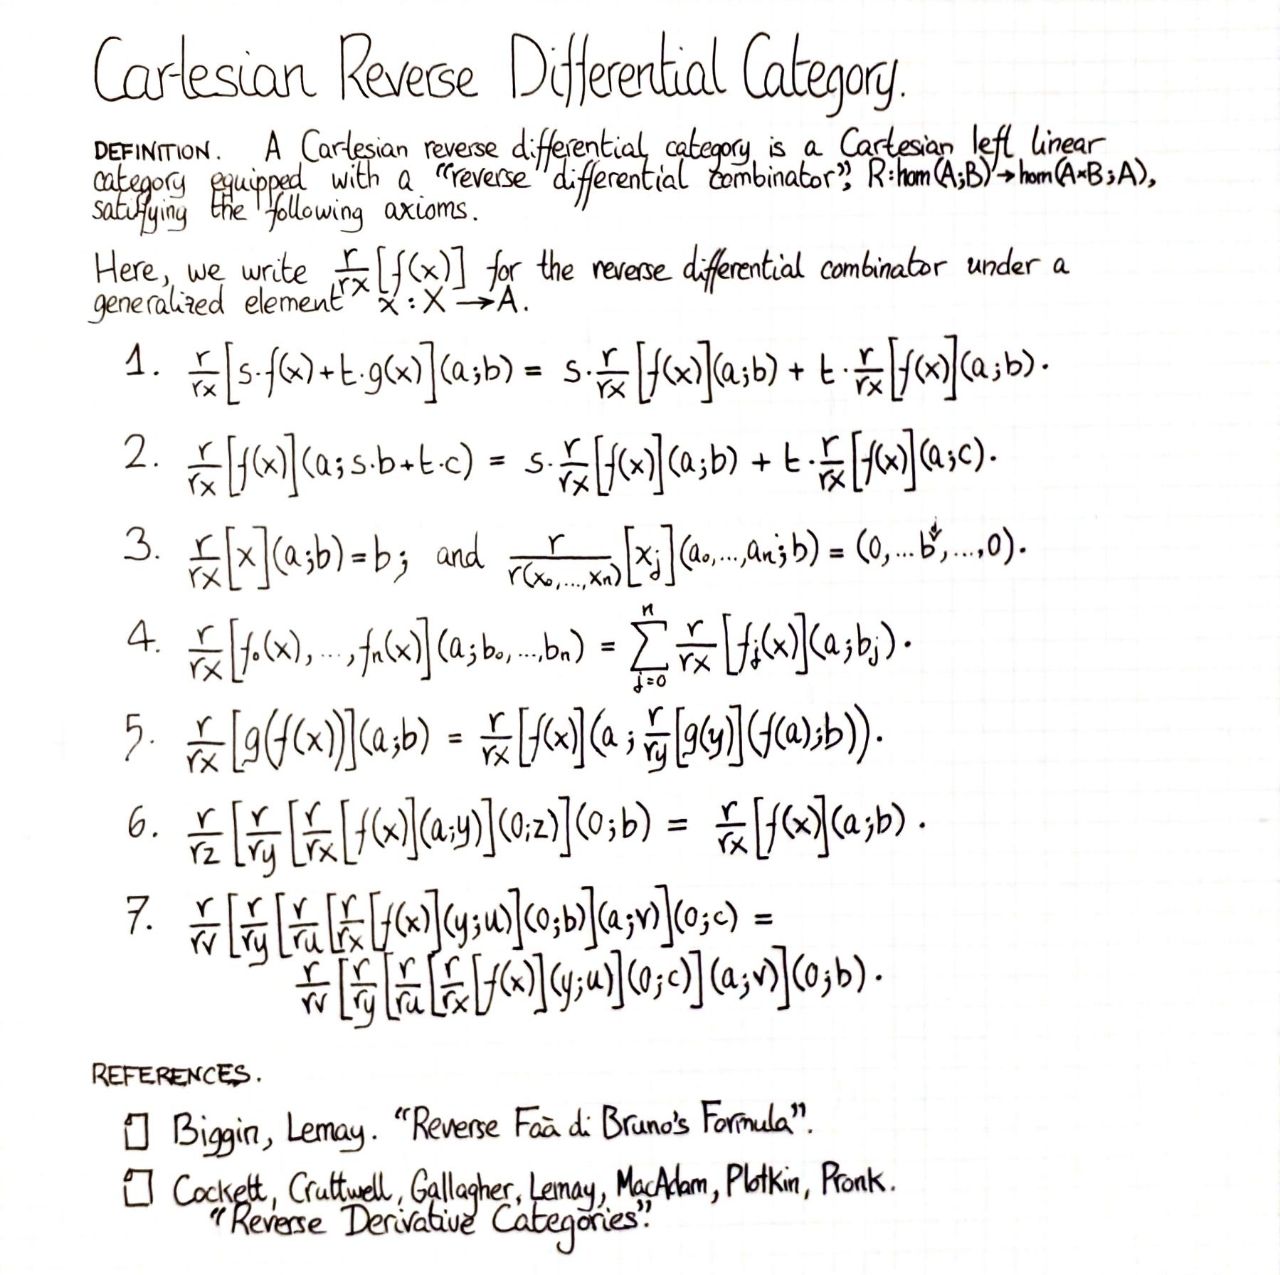 Cartesian Reverse Differential Category.
DEFINITION. A Cartesian reverse differential category is a Cartesian left linear
category equipped with a “reverse differential combinator”, R:hom(A;B)→hom(A×B;A),
satisfying the following axioms.
Here, we write r/rx[f(x)] for the reverse differential combinator under a
generalized element x : X → A.
1. r/rx[s·f(x)+t·g(x)](a;b) = s·r/rx[f(x)](a;b) + t·r/rx[f(x)](a;b).
2. r/rx[f(x)](a;s·b+t·c) = s·r/rx[f(x)](a;b) + t·r/rx[f(x)](a;c).
3. r/rx[x](a;b)=b; and r/r(x₀,...,xₙ)[xⱼ](a₀,...,aₙ;b) = (0,...b,...,0).
4. r/rx[f₀(x),...,fₙ(x)](a;b₀,...,bₙ) = ∑ⁿⱼ₌₀ r/rx[fⱼ(x)](a;bⱼ).
5. r/rx[g(f(x))](a;b) = r/rx[f(x)](a;r/ry[g(y)](f(a);b)).
6. r/rz[r/ry[r/rx[f(x)](a;y)](0;z)](0;b) = r/rx[f(x)](a;b).
7. r/rv[r/ry[r/ru[r/rx[f(x)](y;u)](0;b)](a;v)](0;c) =
r/rv[r/ry[r/ru[r/rx[f(x)](y;u)](0;c)](a;v)](0;b).
REFERENCES.
Biggin, Lemay. “Reverse Faà di Bruno's Formula”.
Cockett, Cruttwell, Gallagher, Lemay, MacAdam, Plotkin, Pronk.
“Reverse Derivative Categories”.